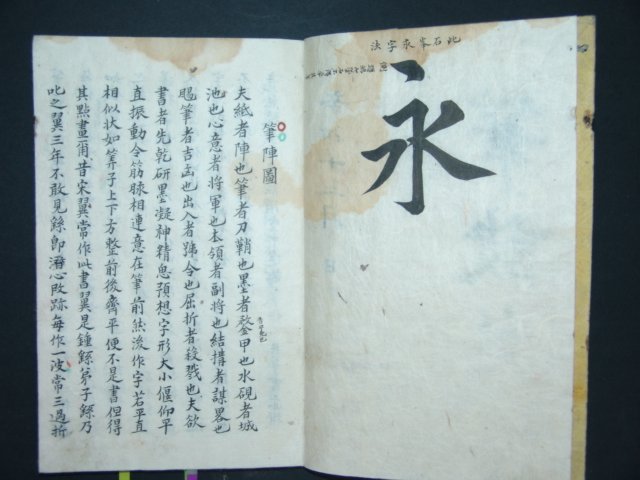 此石峯永字法
永
筆陣圖
夫紙者陣也筆者刀鞘也墨者鍪甲也水硯者城
池也心意者將軍也本領者副將也結搆者謀畧也
颺筆者吉凶也出入者號令也屈折者殺戮也夫欲
書者先乾研墨凝神精思預想字形大小偃仰平
直振動令筋脉相連意在筆前然後作字若平直
相似狀如筭子上下方整前後齊平便不是書但得
其點畫爾昔宋翼常作此書翼是鍾繇弟子繇乃
叱之翼三年不敢見繇即潛心改跡每作一波常三過折